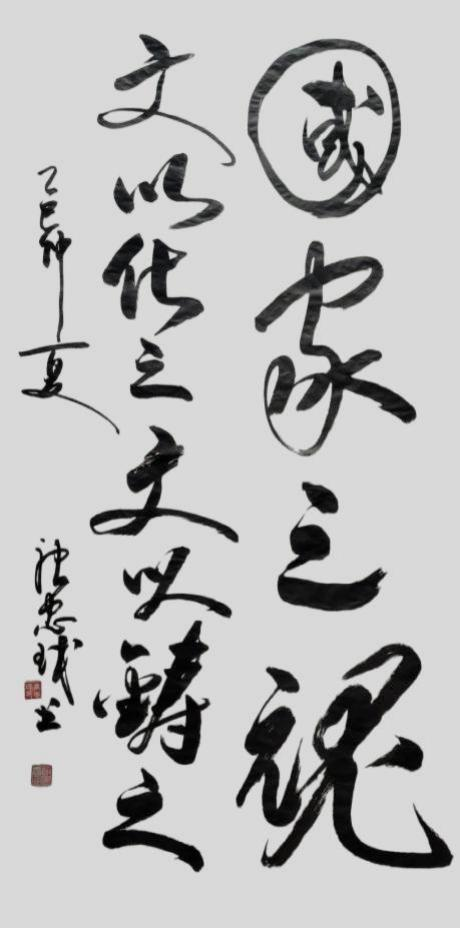 國家之魂
文以化之文以鑄之
乙巳仲夏
忠